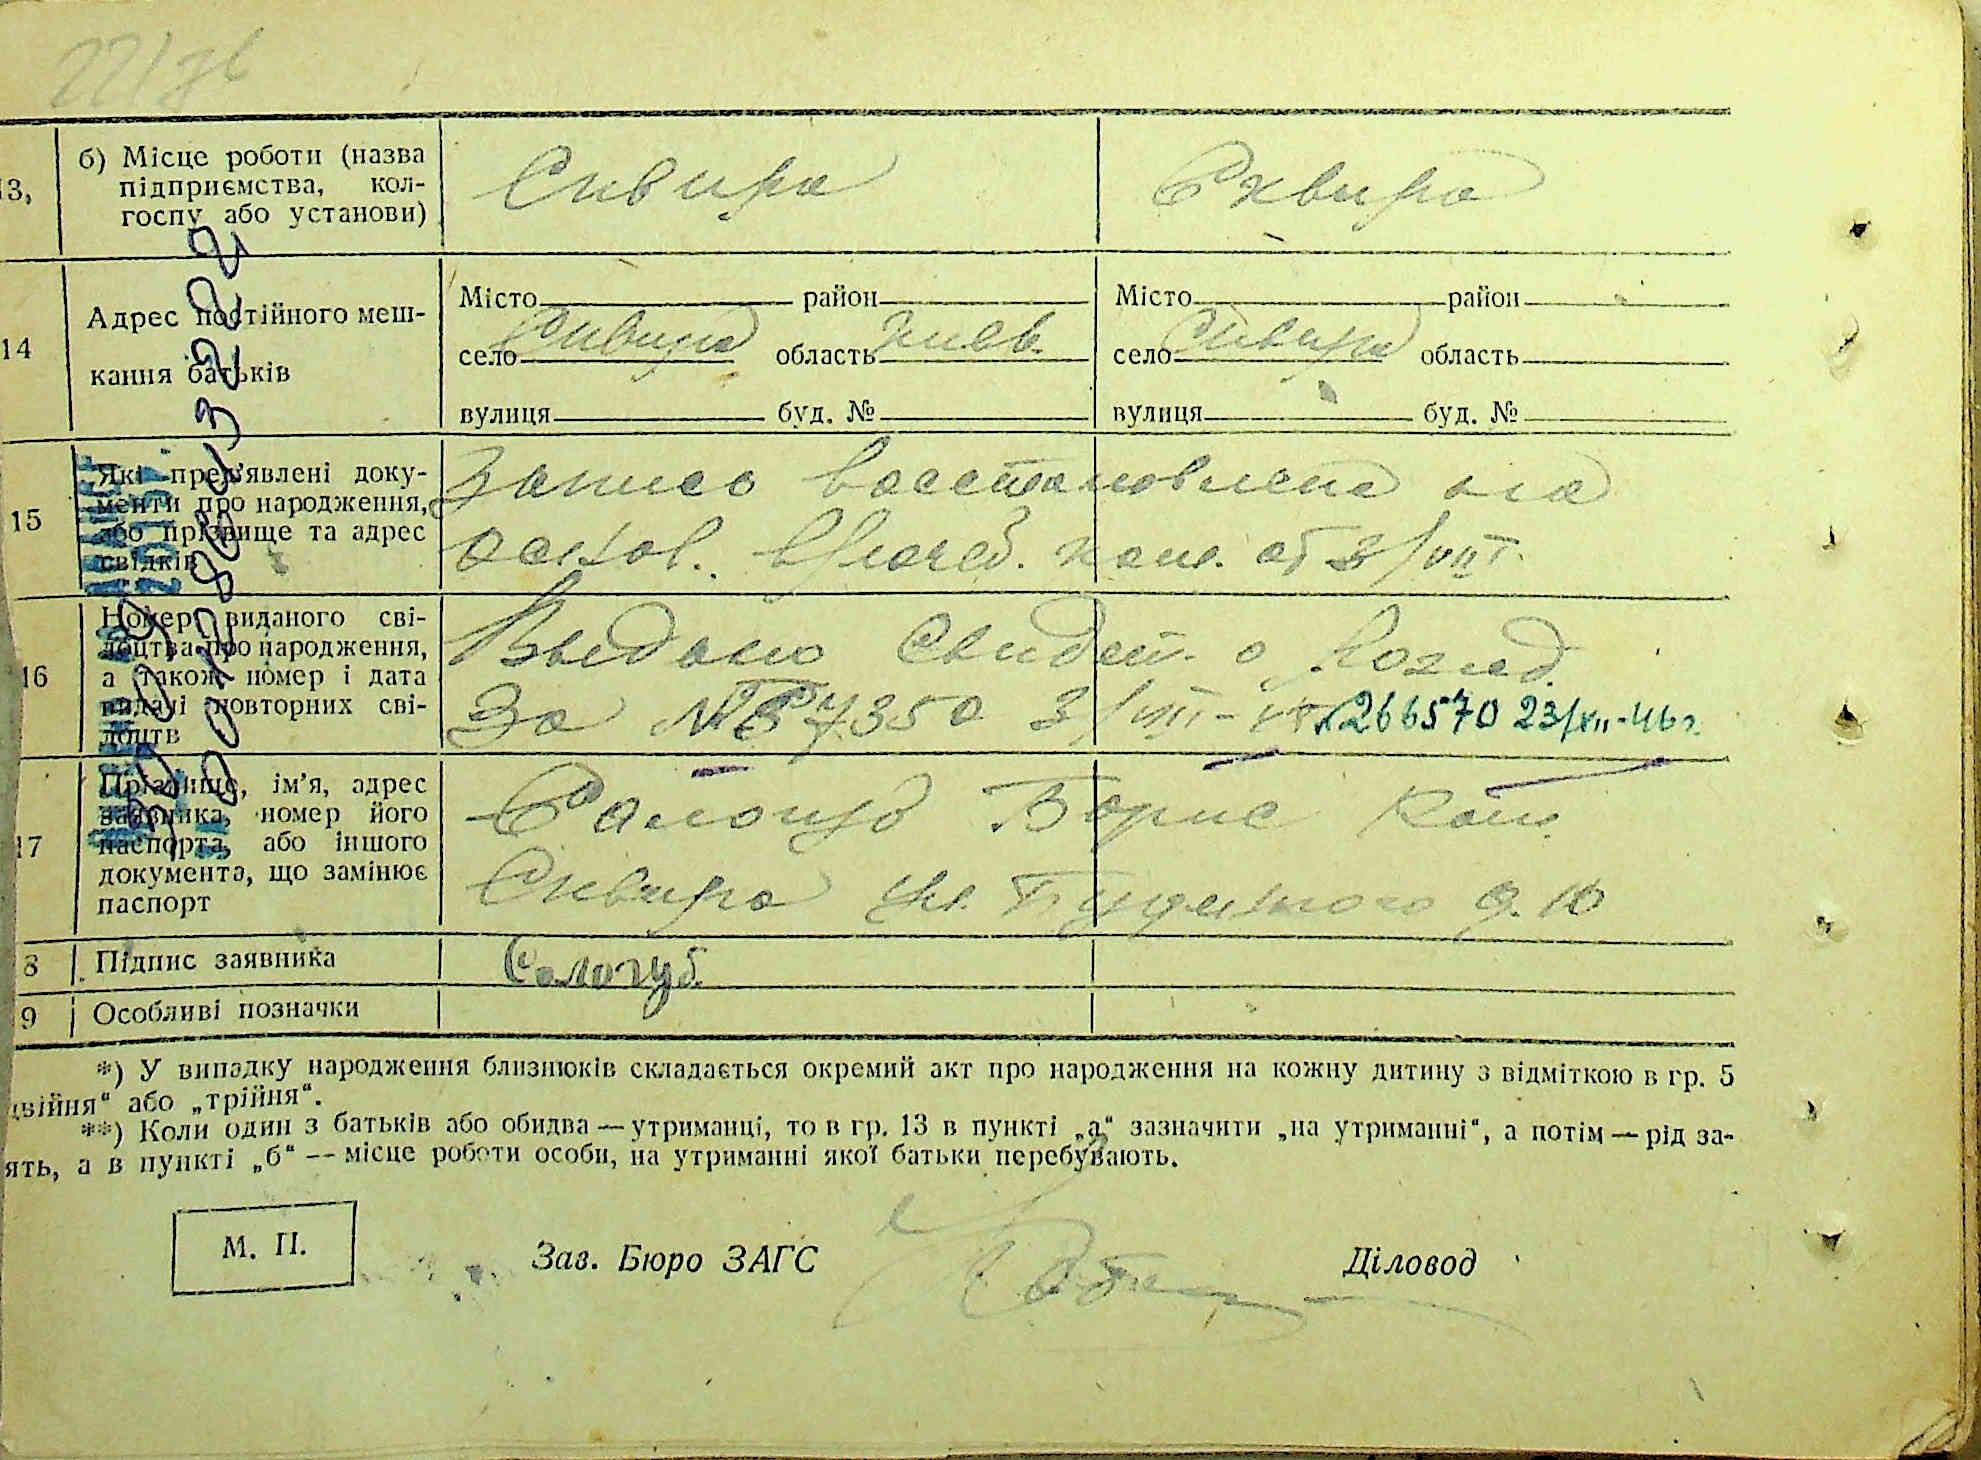 13, б) Місце роботи (назва
підприємства, кол-
госпу або установи)
Сквира
Сквира
14 Адрес постійного меш-
кання батьків
Місто район
село Сквира область Киев.
вулиця буд. №
Місто район
село Сквира область
вулиця буд. №
15 Які пред'явлені доку-
менти про народження,
або прізвище та адрес
свідків
Запись восстановлена на
основ. врачеб. ком. от 3/VIII
16 Номер виданого сві-
доцтва про народження,
а також номер і дата
видачі повторних сві-
доцтв
Выдано свидет. о рожд.
За № 7350 3/VIII- 266570 23/XII-46 г.
17 Прізвище, ім'я, адрес
заявника, номер його
паспорта, або іншого
документа, що замінює
паспорт
Сологуб Борис
Сквира ул. Буденного д. 10
8 Підпис заявника
Сологуб
9 Особливі позначки
*) У випадку народження близнюків складається окремий акт про народження на кожну дитину з відміткою в гр. 5
двійня“ або „трійня“.
**) Коли один з батьків або обидва — утриманці, то в гр. 13 в пункті „а“ зазначити „на утриманні“, а потім — рід за-
ять, а в пункті „б“ — місце роботи особи, на утриманні якої батьки перебувають.
М. П.
Зав. Бюро ЗАГС
Діловод